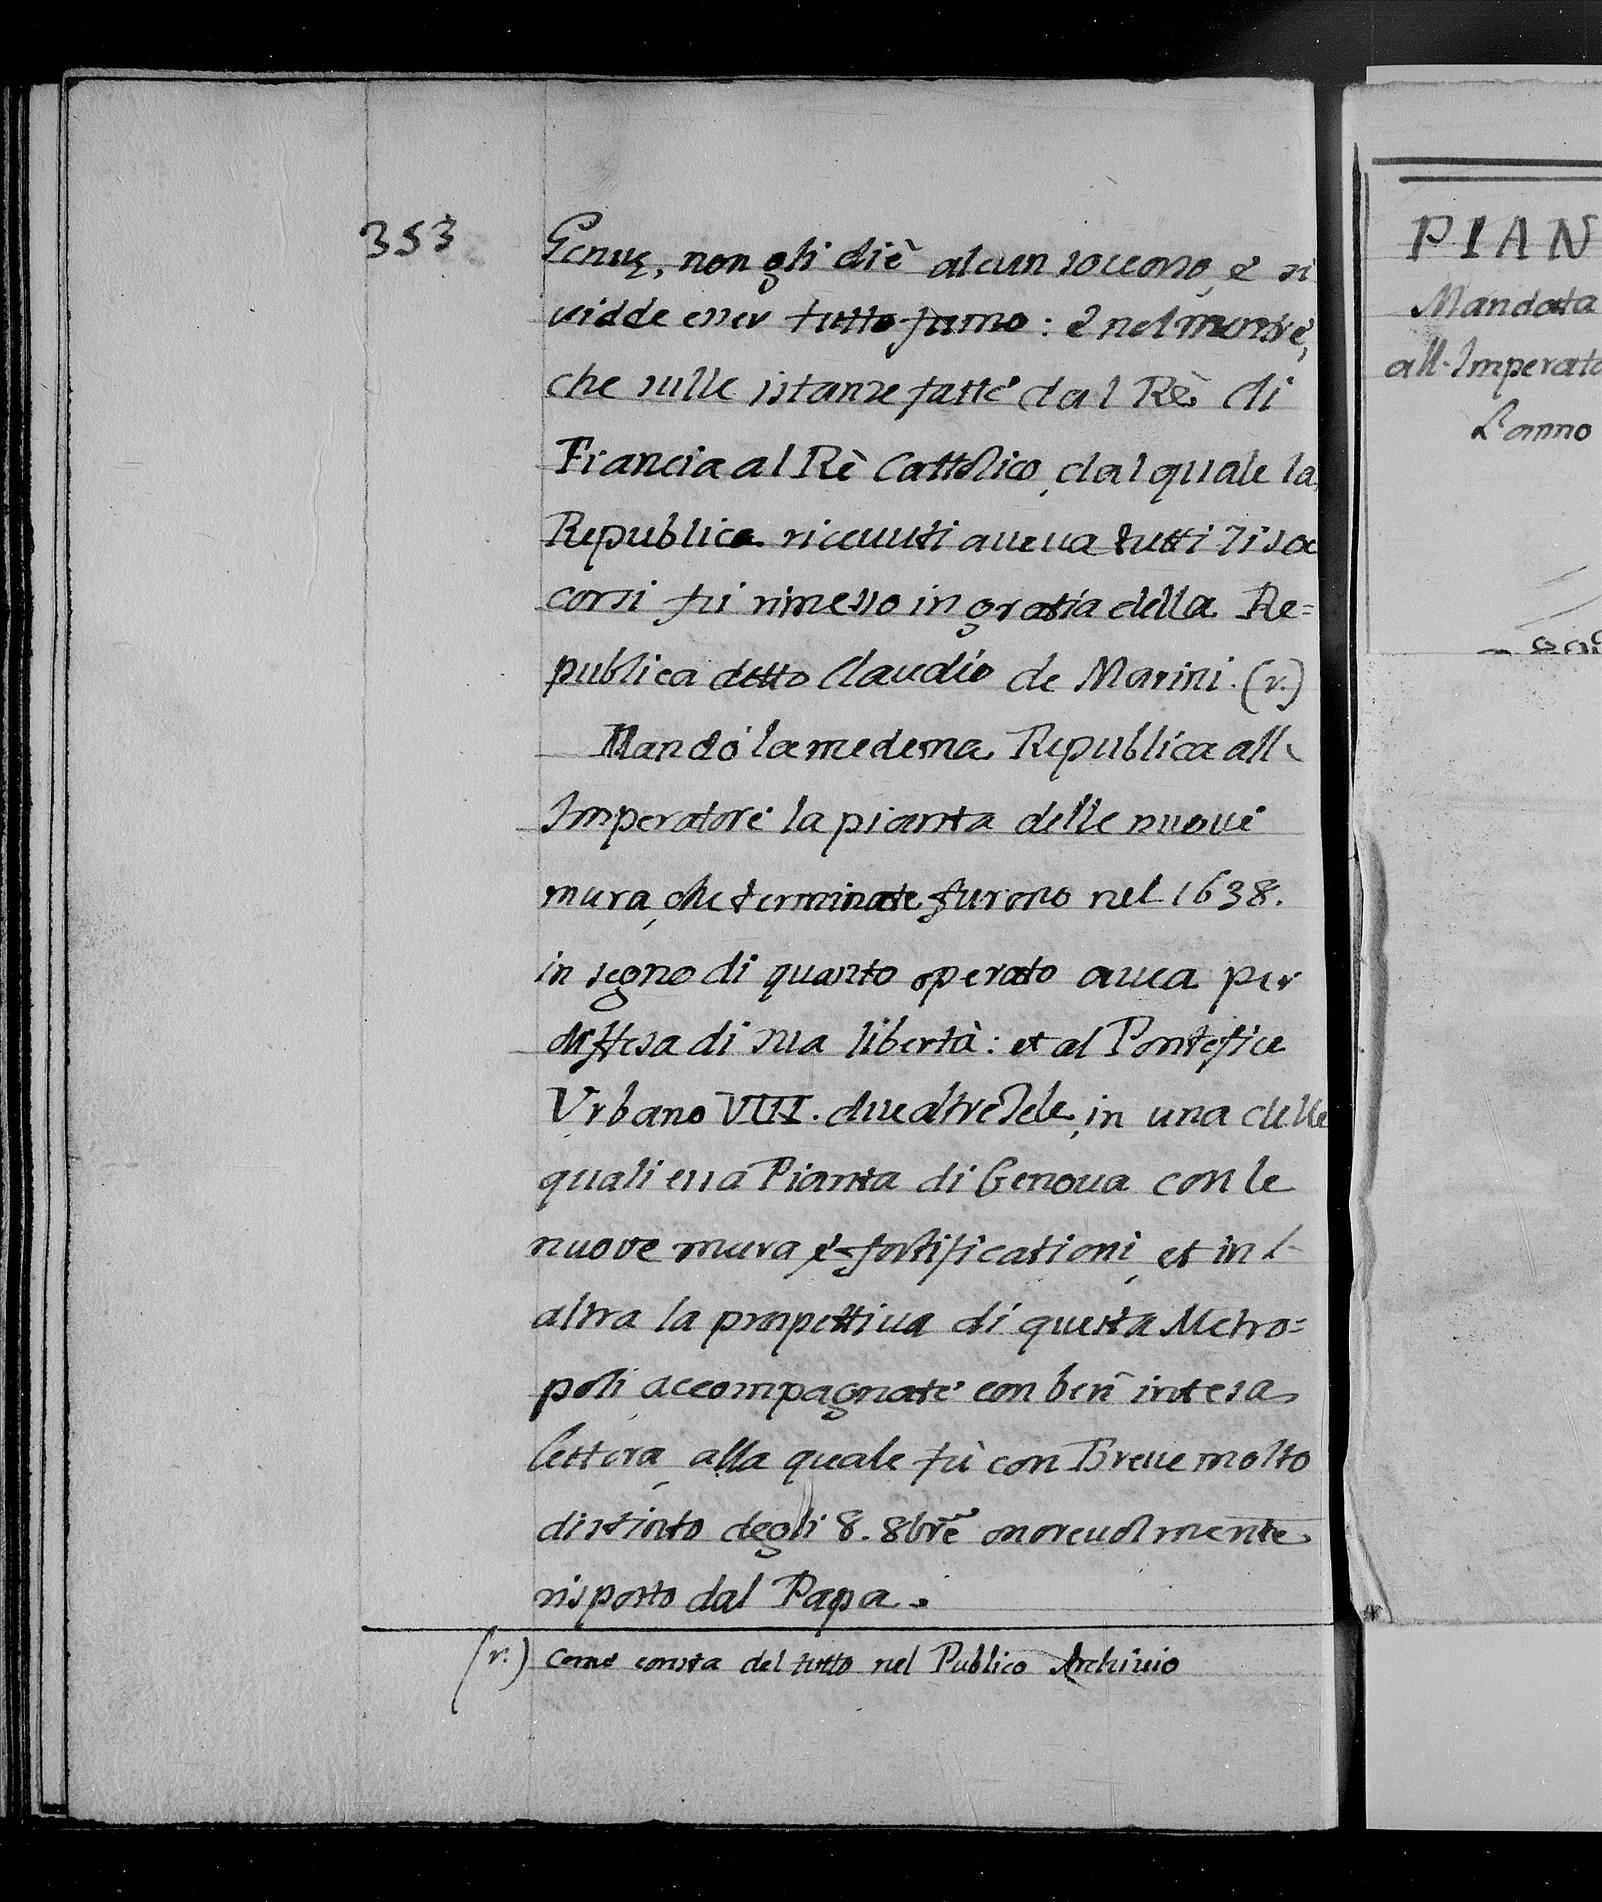 353
Genuę, non gli diè alcun soccorso, è si
vidde esser tutto fumo: è nel mentre,
che sulle istanze fatte dal Rè di
Francia al Rè Cattolico, dal quale la
Republica riceuuti aueua tutti li soc
corsi fu rimesso in gratia della Re=
publica detto Claudio de Marini. (r.)
Mandò la medema Republica all
Imperatore la pianta delle nuoue
mura, che terminate furono nel 1638.
in segno di quanto operato auea per
diffesa di sua libertà: et al Pontefice
Vrbano VIII. due altre Tele, in una delle
quali era Pianta di Genoua con le
nuove mura è fortificationi, et in l
altra la prospettiua di questa Metro=
poli, accompagnate con ben intesa
lettera, alla quale fù con Breue molto
distinto degli 8. 8bre onoreuolmente
risposto dal Papa.
(r.) Come consta del tutto nel Publico Archiuio
PIAN
Mandata
all Imperato
L anno